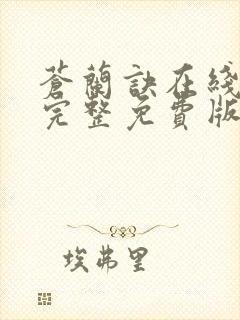 蒼蘭訣在綫
完整免費版
埃弗里